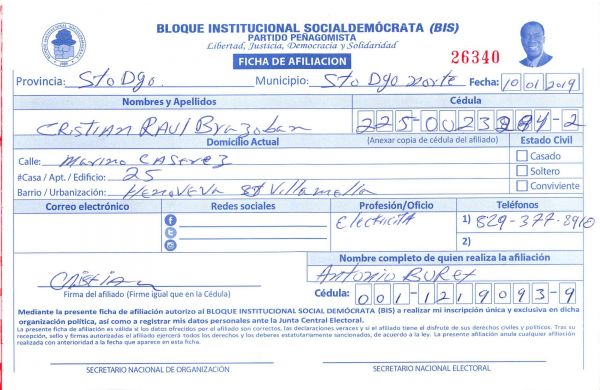 BLOQUE INSTITUCIONAL SOCIALDEMÓCRATA (BIS)
PARTIDO PEÑAGOMISTA
Libertad, Justicia, Democracia y Solidaridad
FICHA DE AFILIACION
26340
Provincia: Sto Dgo. Municipio: Sto Dgo norte Fecha: 10 01 2019
Nombres y Apellidos Cédula
CRISTIAN RAUL Brazoban 225-0023
(Anexar copia de cédula del afiliado)
Domicilio Actual Estado Civil
Calle: Marino CASerez Casado
#Casa / Apt. / Edificio: 25 Soltero
Barrio / Urbanización: Villa mella Conviviente
Correo electrónico Redes sociales Profesión/Oficio Teléfonos
1) 829-377-8910
2)
Nombre completo de quien realiza la afiliación
Cristian Antonio BURet
Firma del afiliado (Firme igual que en la Cédula) Cédula: 001-1219093-9
Mediante la presente ficha de afiliación autorizo al BLOQUE INSTITUCIONAL SOCIAL DEMÓCRATA (BIS) a realizar mi inscripción única y exclusiva en dicha
organización política, así como a registrar mis datos personales ante la Junta Central Electoral.
La presente ficha de afiliación es válida si los datos ofrecidos por el afiliado son correctos, las declaraciones veraces y si el afiliado tiene el disfrute de sus derechos civiles y políticos. Tras su
recepción, sello y firmas autorizadas el afiliado ejercerá todos los derechos y los deberes estatutariamente sancionados, de acuerdo a la ley. La presente afiliación anula cualquier afiliación
realizada con anterioridad a la fecha que aparece en esta ficha.
SECRETARIO NACIONAL DE ORGANIZACIÓN SECRETARIO NACIONAL ELECTORAL